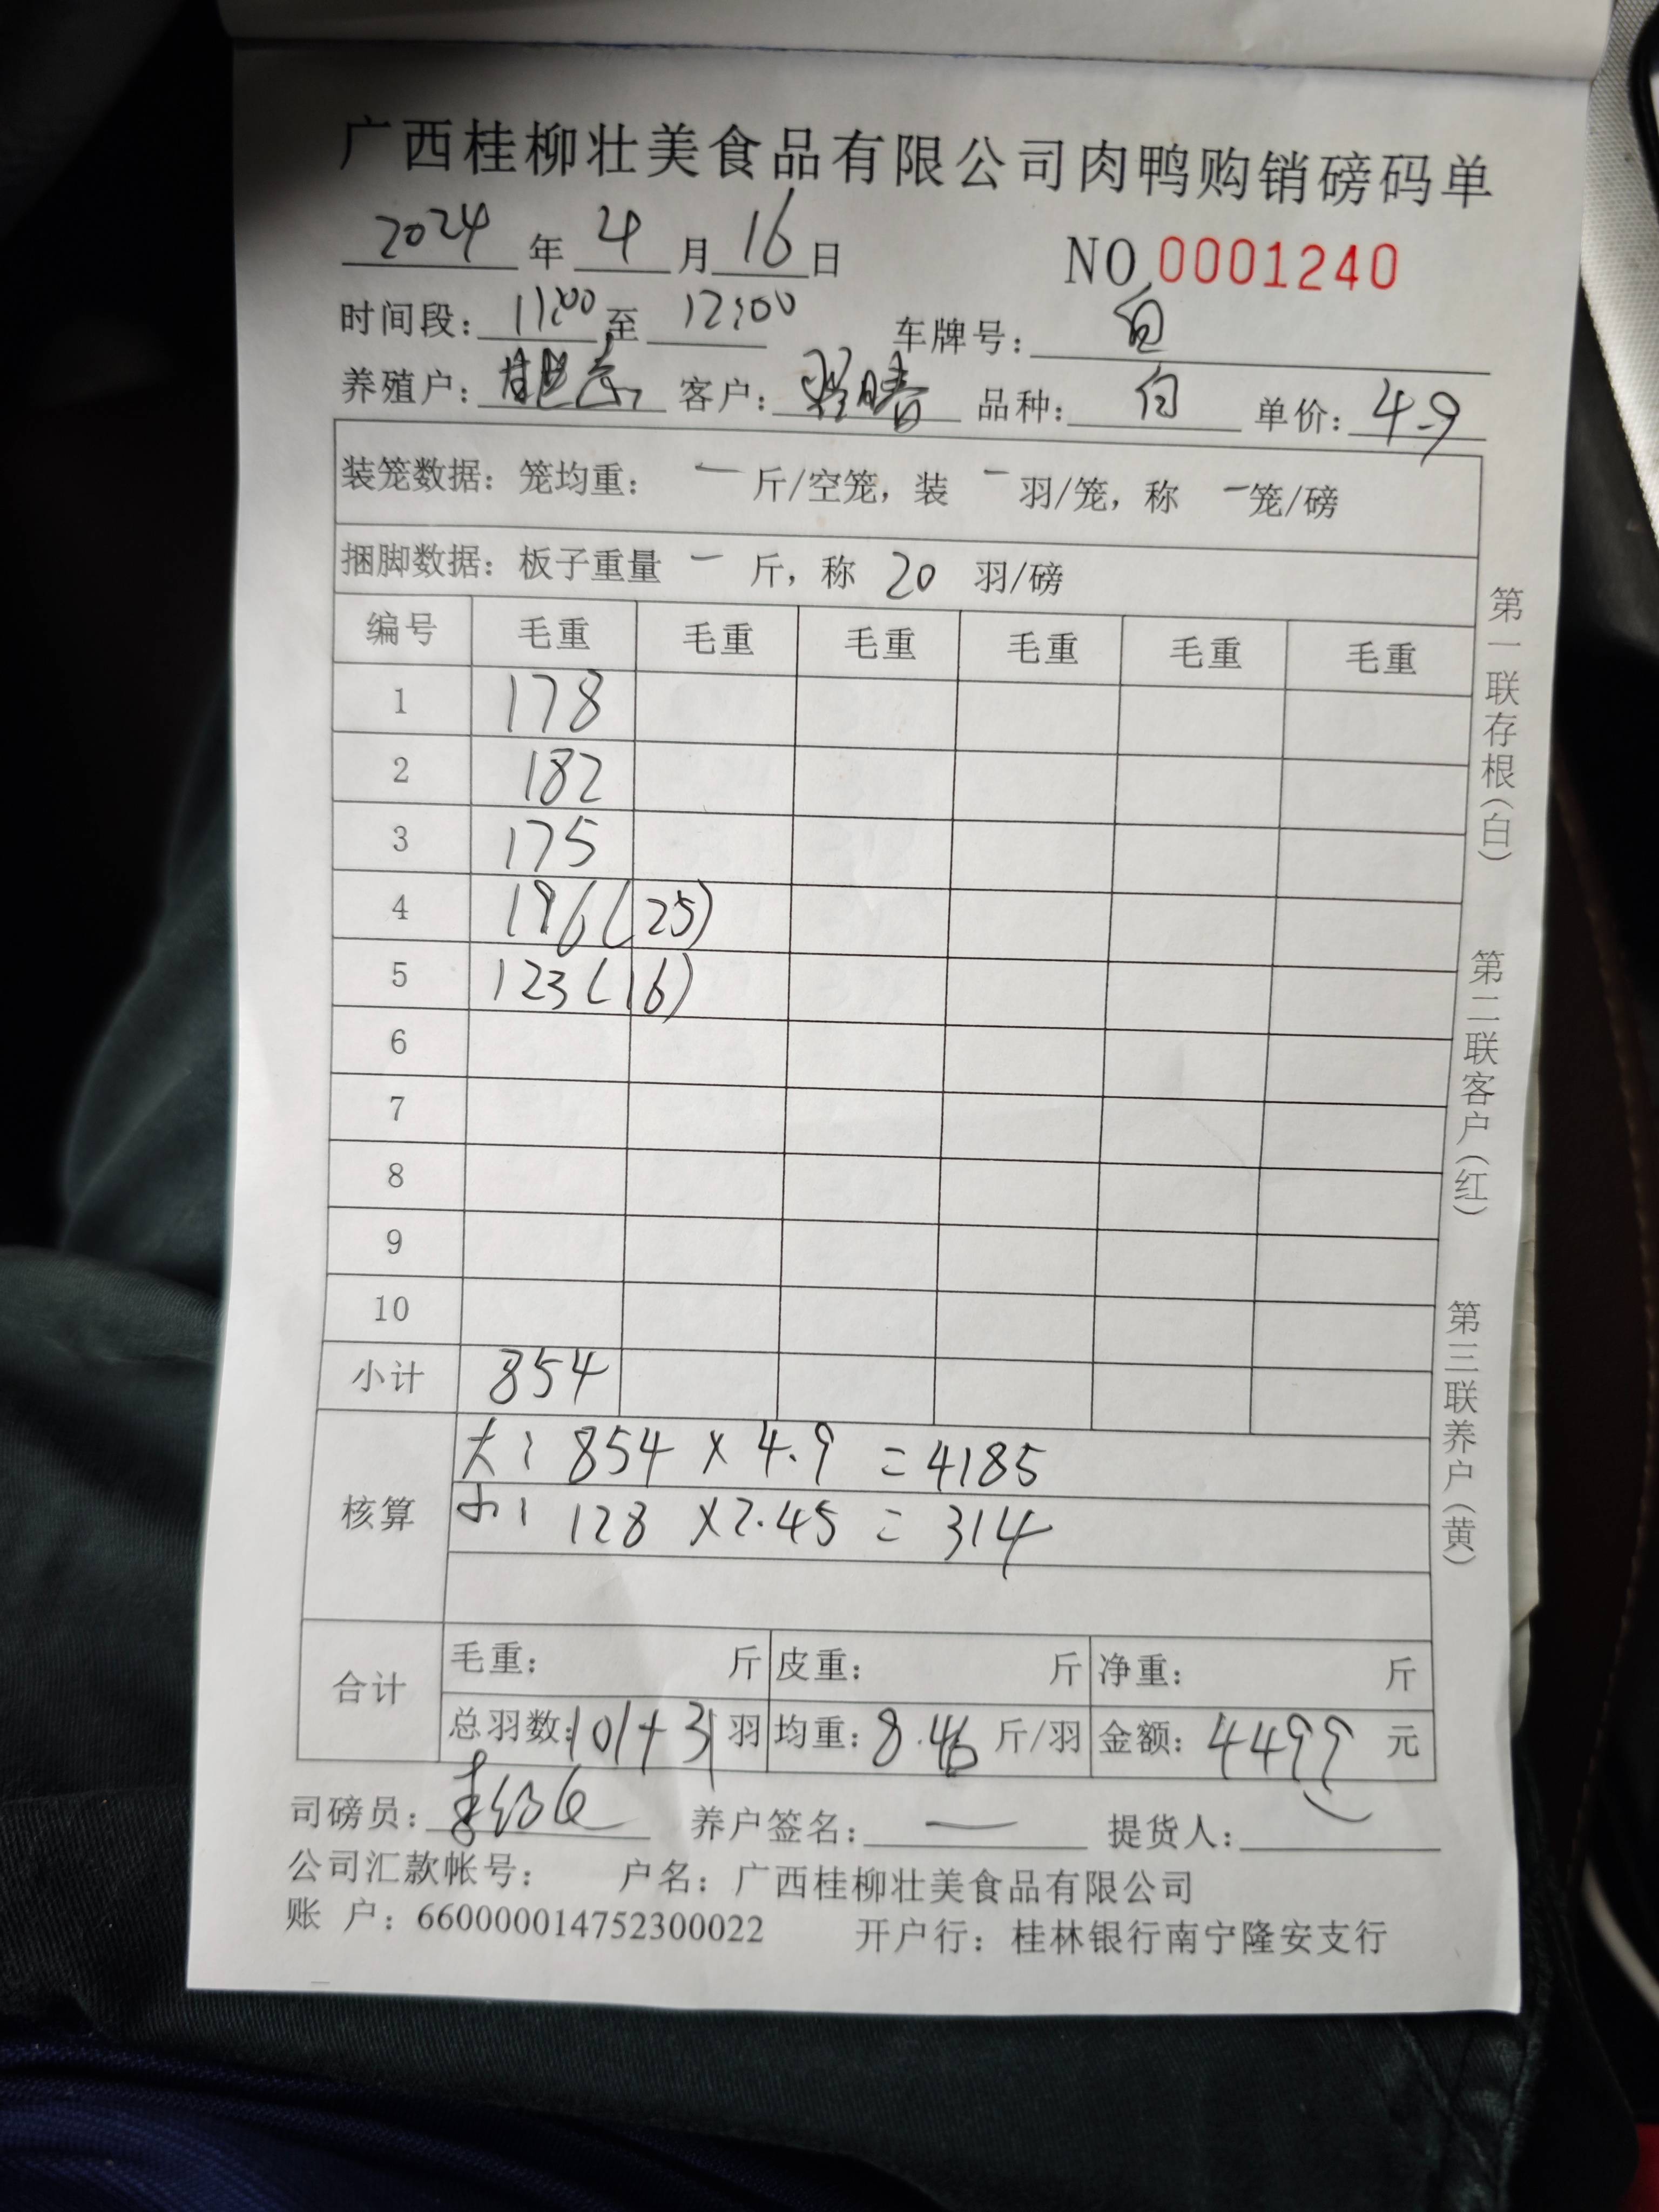 广西桂柳壮美食品有限公司肉鸭购销磅码单
2024 年 4 月 16 日 NO 0001240
时间段: 11:00 至 12:00 车牌号:
养殖户: 客户: 品种: 白 单价: 4.9
装笼数据: 笼均重: 一 斤/空笼, 装 一 羽/笼, 称 一 笼/磅
捆脚数据: 板子重量 一 斤, 称 20 羽/磅
编号 毛重 毛重 毛重 毛重 毛重 毛重
1 178
2 182
3 175
4 196(25)
5 123(16)
6
7
8
9
10
小计 854
核算
大: 854 × 4.9 = 4185
小: 128 × 2.45 = 314
合计
毛重: 斤 皮重: 斤 净重: 斤
总羽数: 101+31 羽 均重: 8.46 斤/羽 金额: 4499 元
司磅员: 养户签名: 一 提货人:
公司汇款帐号: 户名: 广西桂柳壮美食品有限公司
账 户: 660000014752300022 开户行: 桂林银行南宁隆安支行
第一联存根(白)
第二联客户(红)
第三联养户(黄)